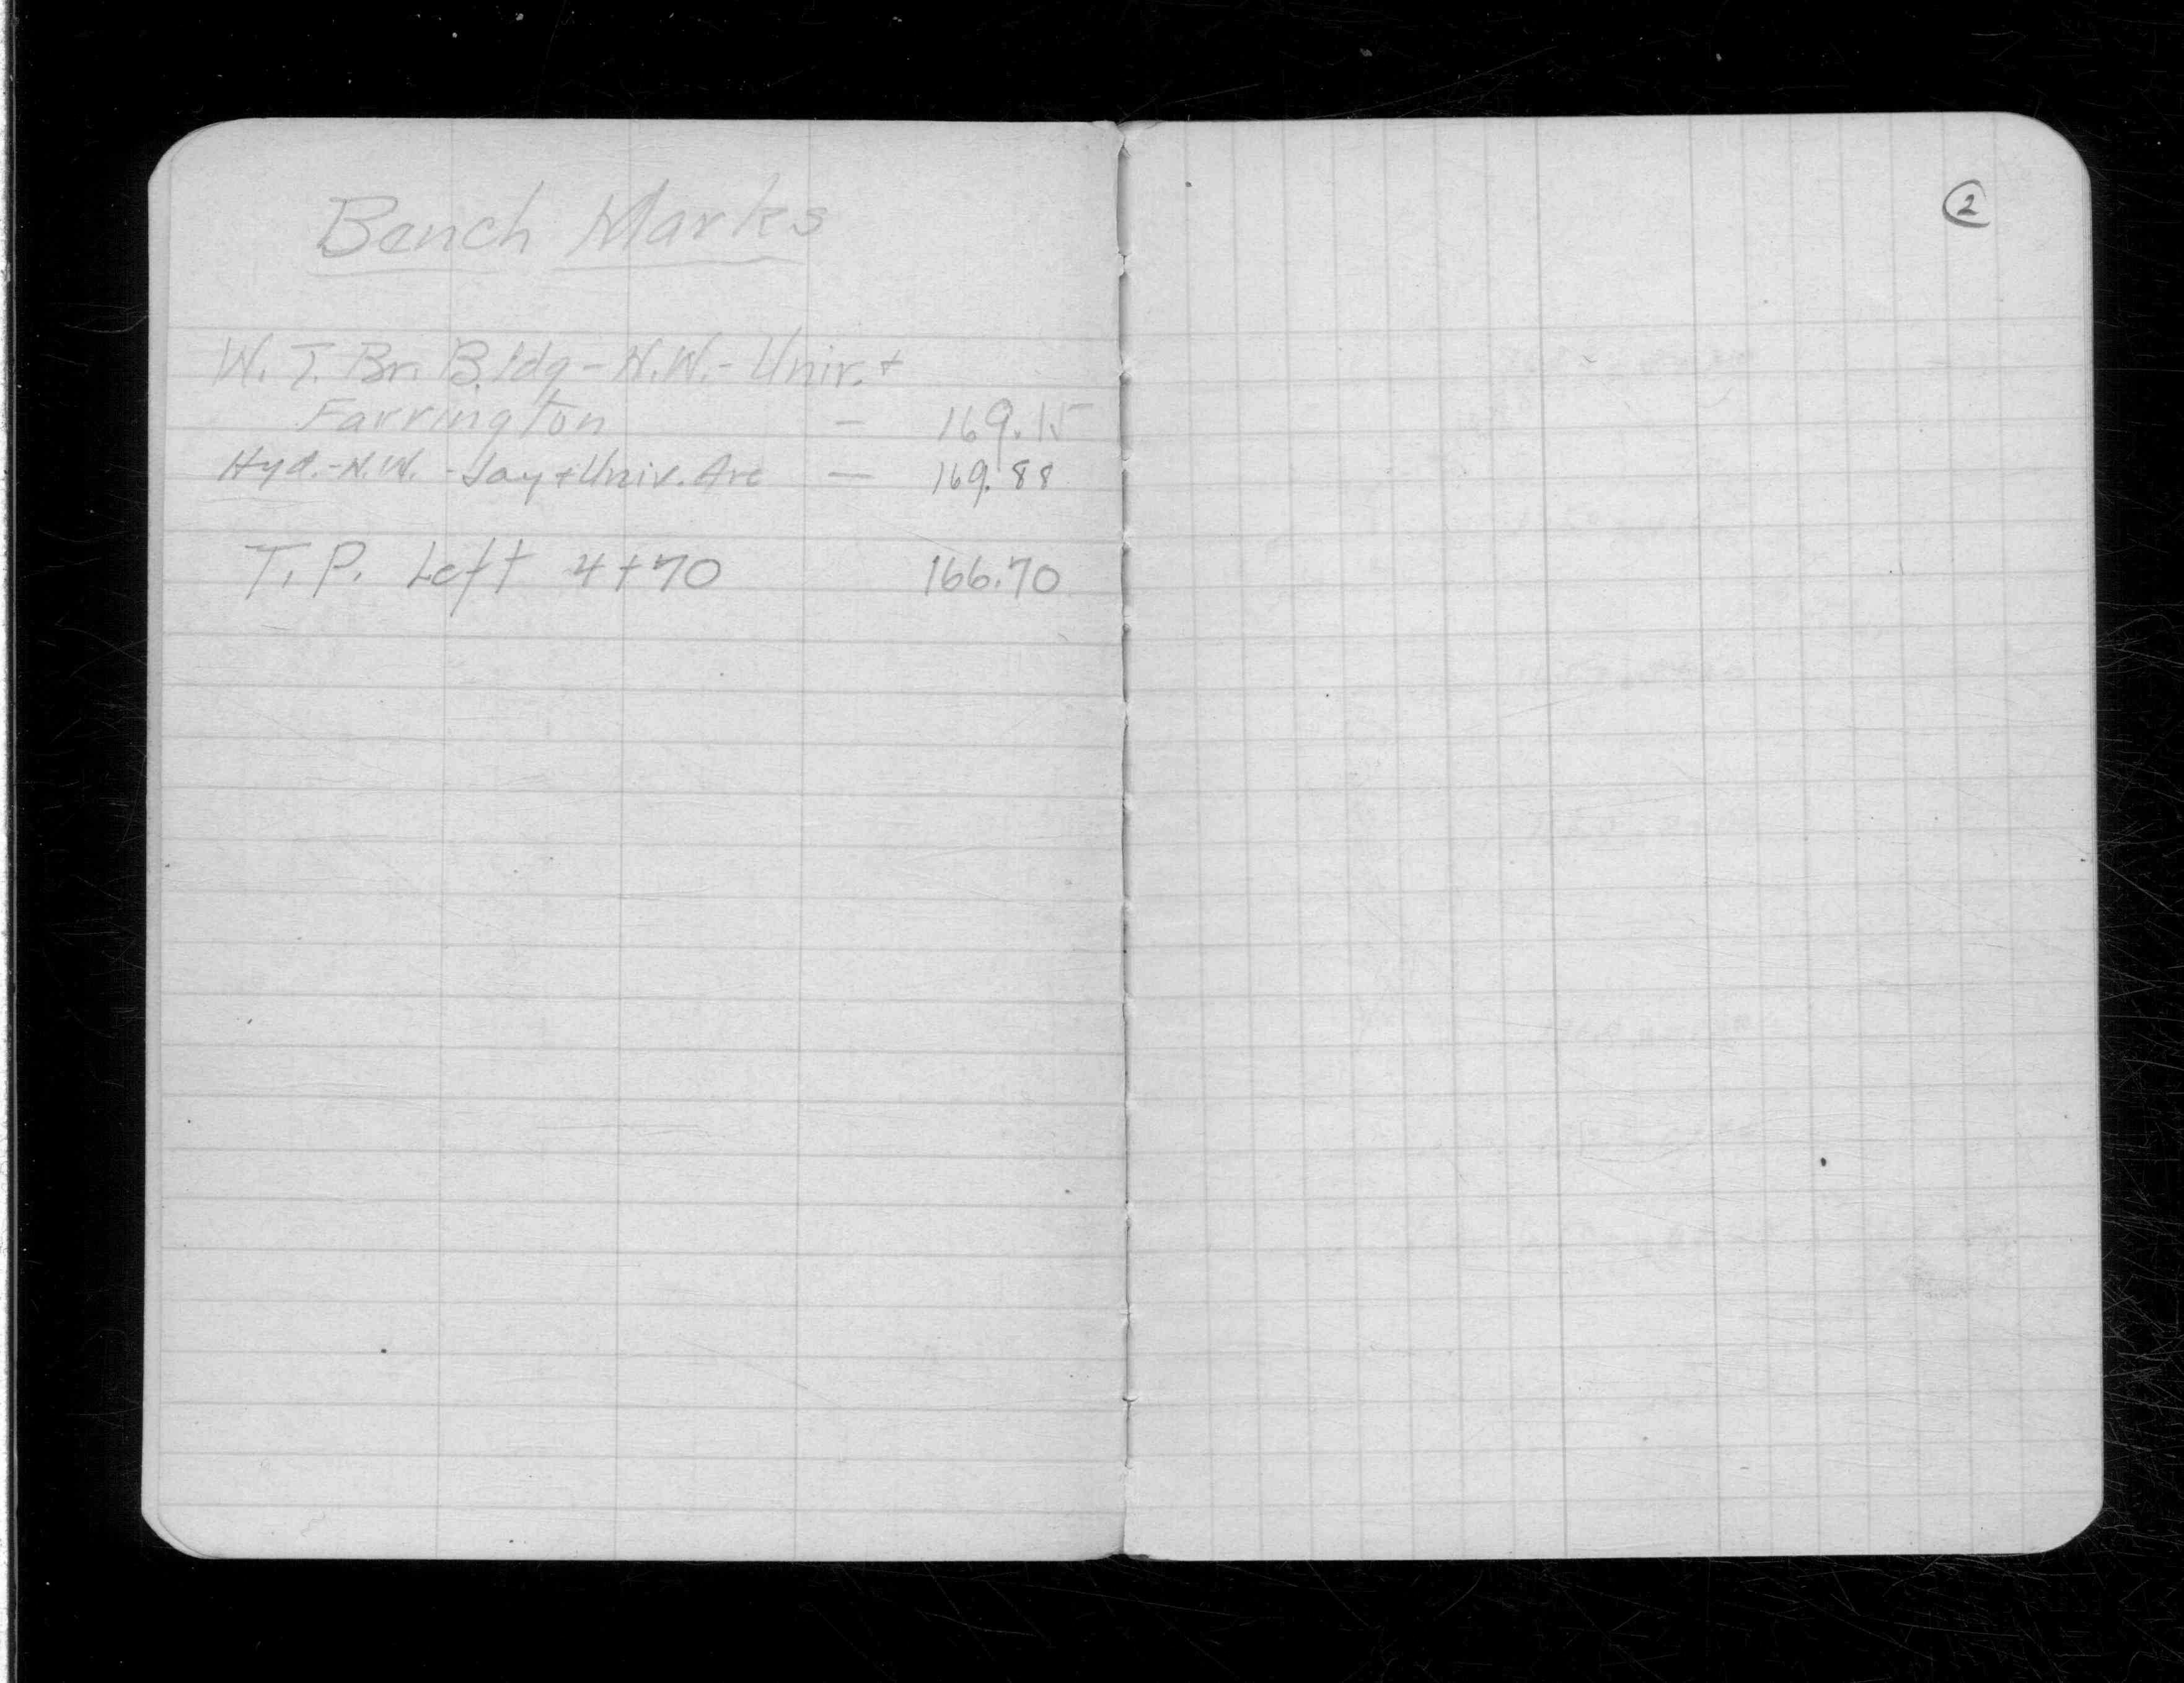 Bench Marks
W. T. Br. Bldg - N.W. - Univ. +
Farrington - 169.15
Hyd. - N.W. - Jay + Univ. Ave — 169.88
T.P. Left 4+70 166.70
2